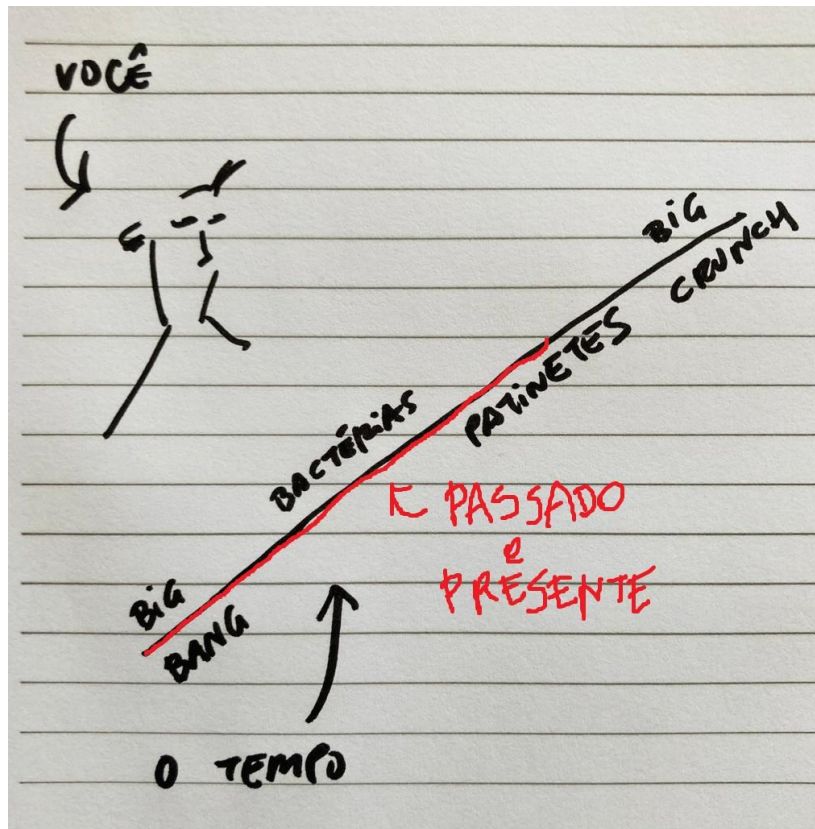 VOCÊ
BIG
CRUNCH
PATINETES
BACTÉRIAS
PASSADO
e
PRESENTE
BIG
BANG
O TEMPO